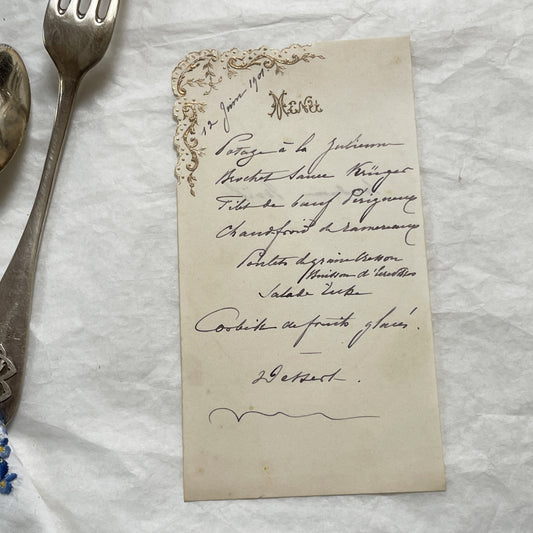 12 Juin 1901
Menu
Potage à la Julienne
Brochet Sauce Krüger
Filet de bœuf Périgueux
Chaudfroid de Ramereaux
Poulets de grains Cresson
Buisson d'Ecrevisses
Salade
Corbeille de fruits glacés.
Dessert.